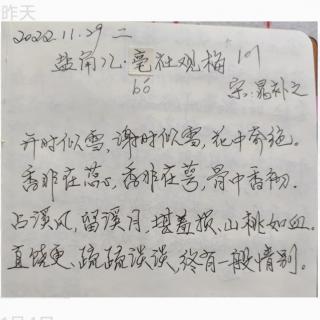 昨天
2022.11.29 二
盐角儿·亳社观梅 101
bó
宋.晁补之
开时似雪,谢时似雪,花中奇绝。
香非在蕊,香非在萼,骨中香彻。
占溪风,留溪月,堪羞损、山桃如血。
直饶更、疏疏淡淡,终有一般情别。